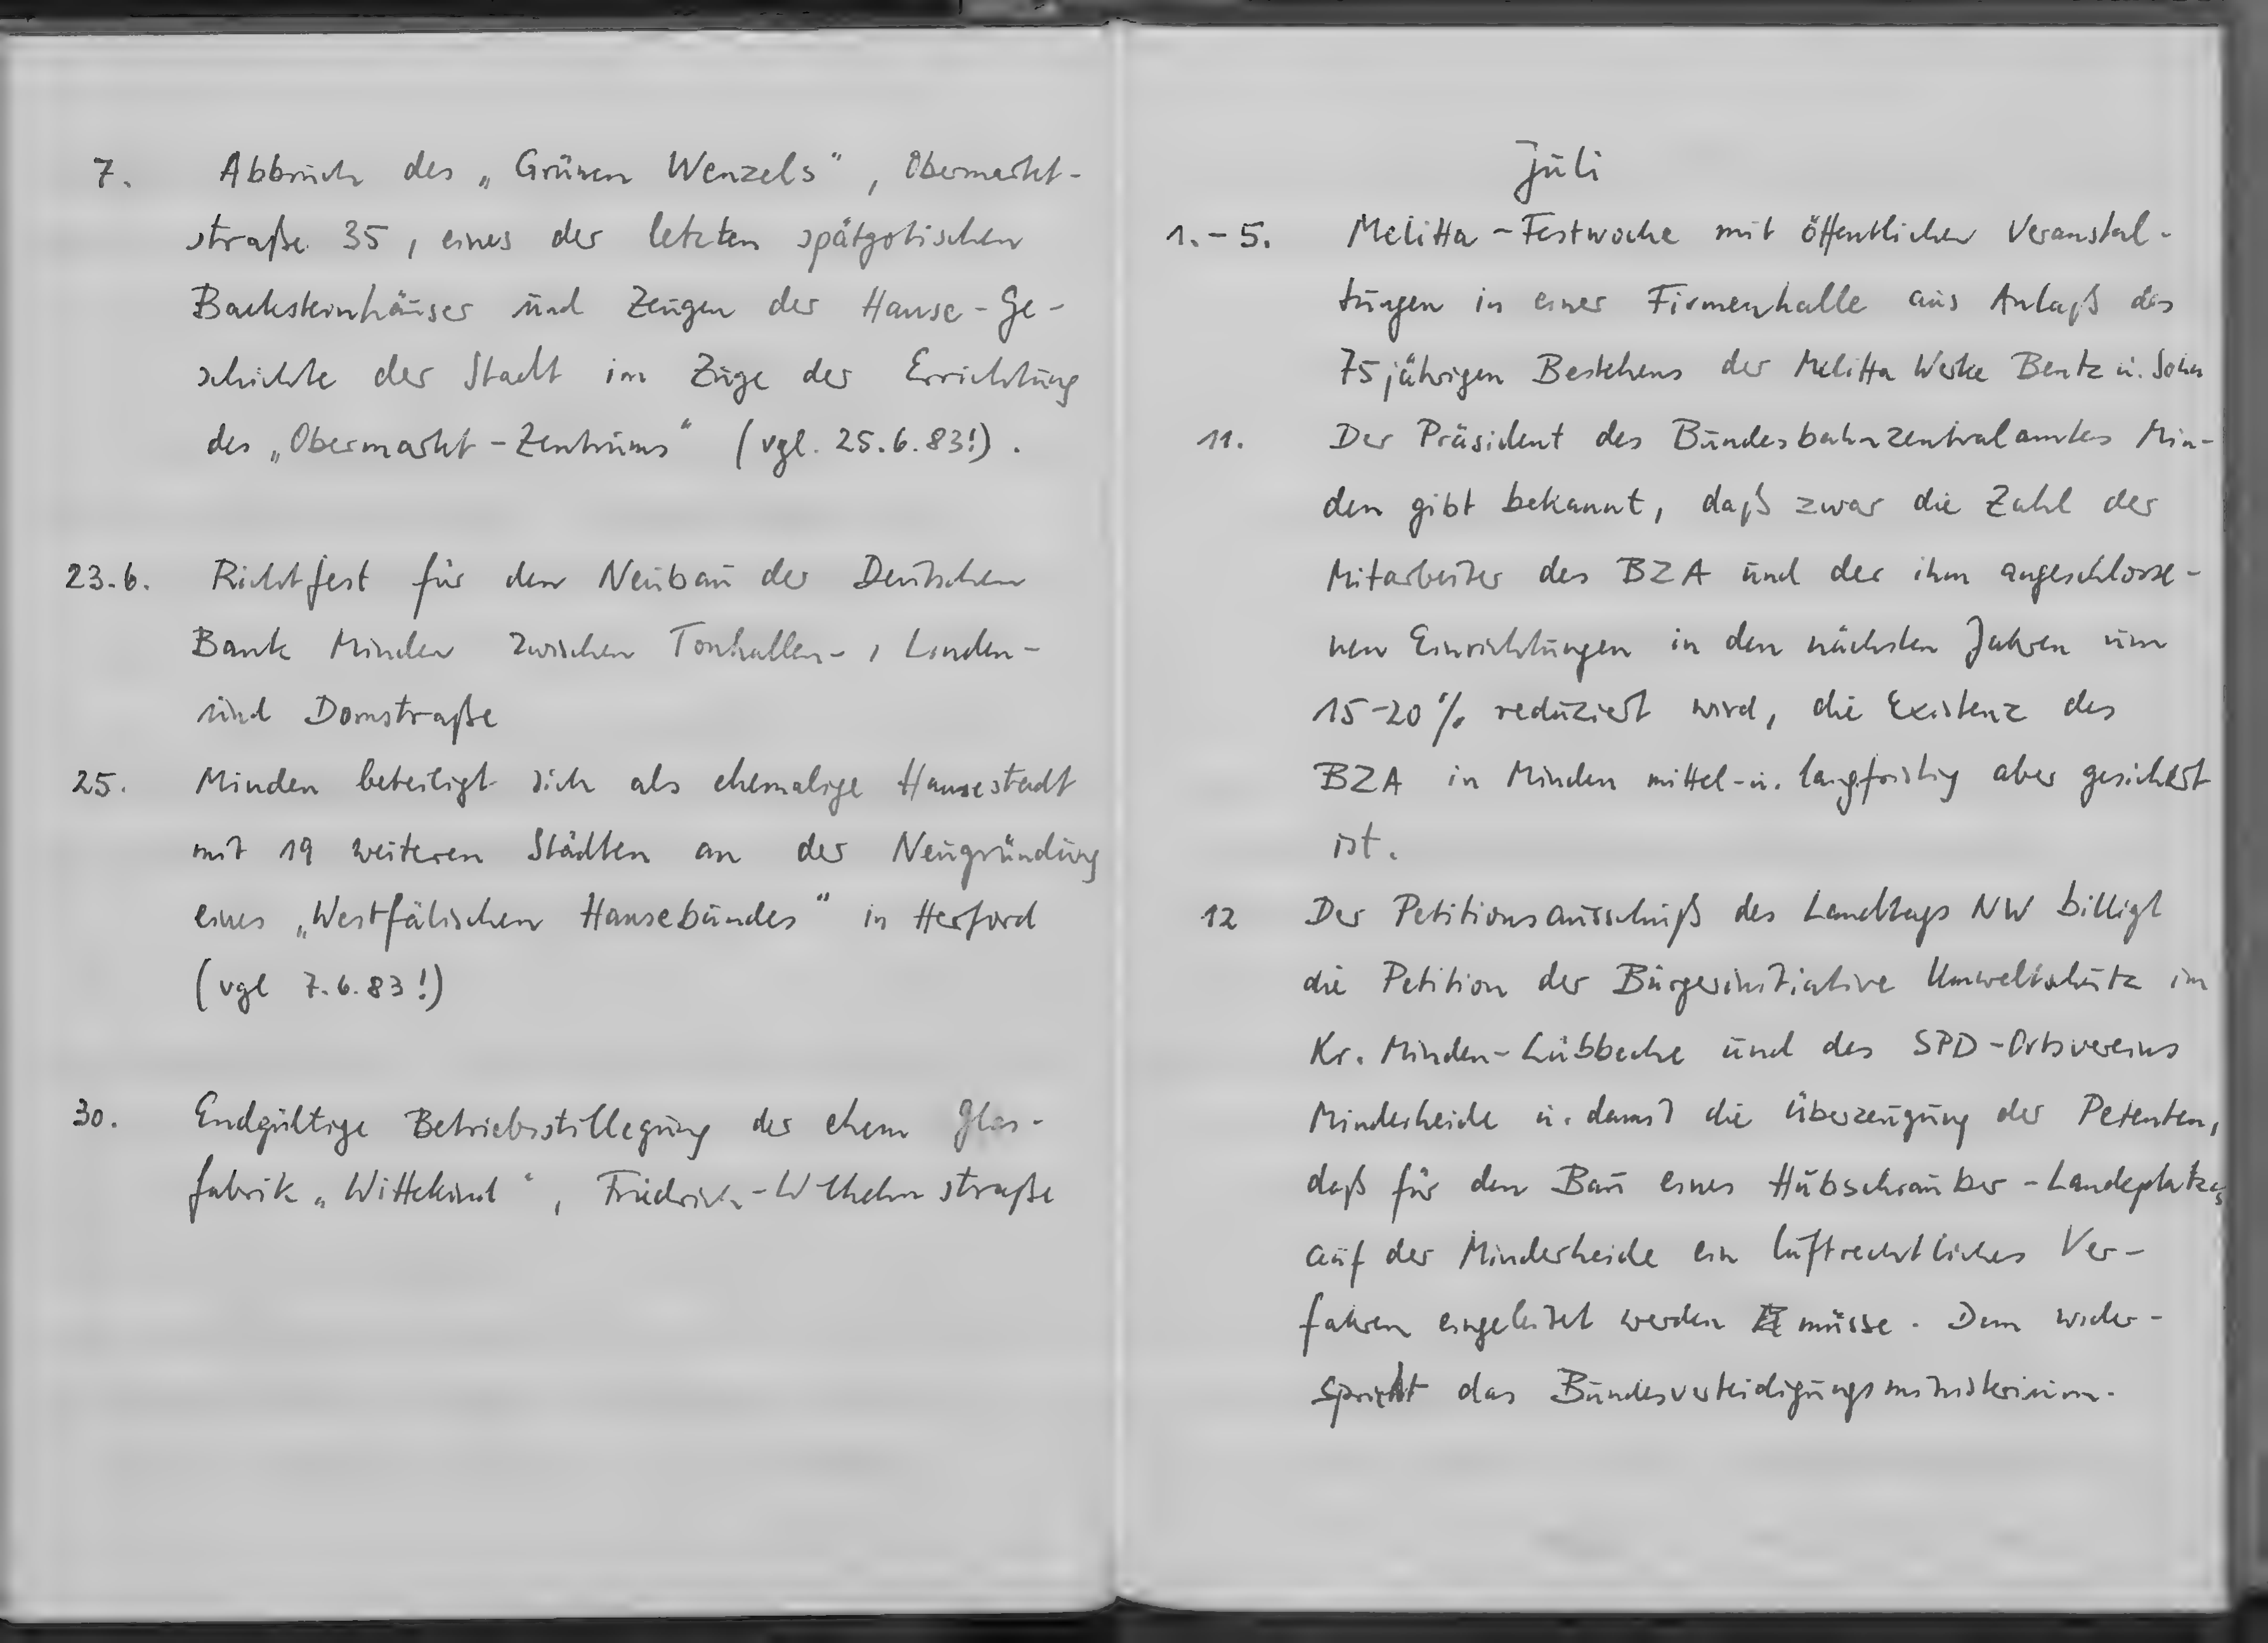 7. Abbruch des „Grünen Wenzels“, Obermarkt-
straße 35, eines der letzten spätgotischen
Backsteinhäuser und Zeugen der Hanse-Ge-
schichte der Stadt im Zuge der Errichtung
des „Obermarkt-Zentrums“ (vgl. 25.6.83!).
23.6. Richtfest für den Neubau der Deutschen
Bank Minden zwischen Tonhallen-, Linden-
und Domstraße
25. Minden beteiligt sich als ehemalige Hansestadt
mit 19 weiteren Städten an der Neugründung
eines „Westfälischen Hansebundes“ in Herford
(vgl 7.6.83!)
30. Endgültige Betriebsstillegung der ehem Glas-
fabrik „Wittekind“, Friedrich-Wilhelmstraße
Juli
1.-5. Melitta-Festwoche mit öffentlichen Veranstal-
tungen in einer Firmenhalle aus Anlaß des
75jährigen Bestehens der Melitta Werke Bentz u. Sohn
11. Der Präsident des Bundesbahnzentralamtes Min-
den gibt bekannt, daß zwar die Zahl der
Mitarbeiter des BZA und der ihm angeschlosse-
nen Einrichtungen in den nächsten Jahren um
15-20% reduziert wird, die Existenz des
BZA in Minden mittel-u. langfristig aber gesichert
ist.
12 Der Petitionsausschuß des Landtags NW billigt
die Petition der Bürgerinitiative Umweltschutz im
Kr. Minden-Lübbecke und des SPD-Ortsvereins
Minderheide u. damit die Überzeugung der Petenten,
daß für den Bau eines Hubschrauber-Landeplatzes
auf der Minderheide ein luftrechtliches Ver-
fahren eingeleitet werden müsse. Dem wider-
spricht das Bundesverteidigungsministerium.